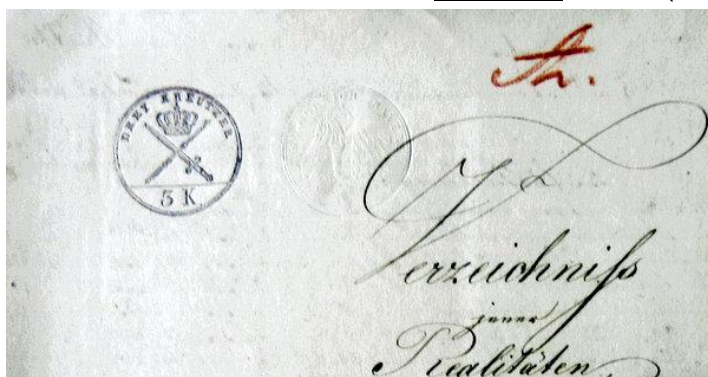 DREY KREUTZER
3 K
Verzeichniſs
jener
Realitäten